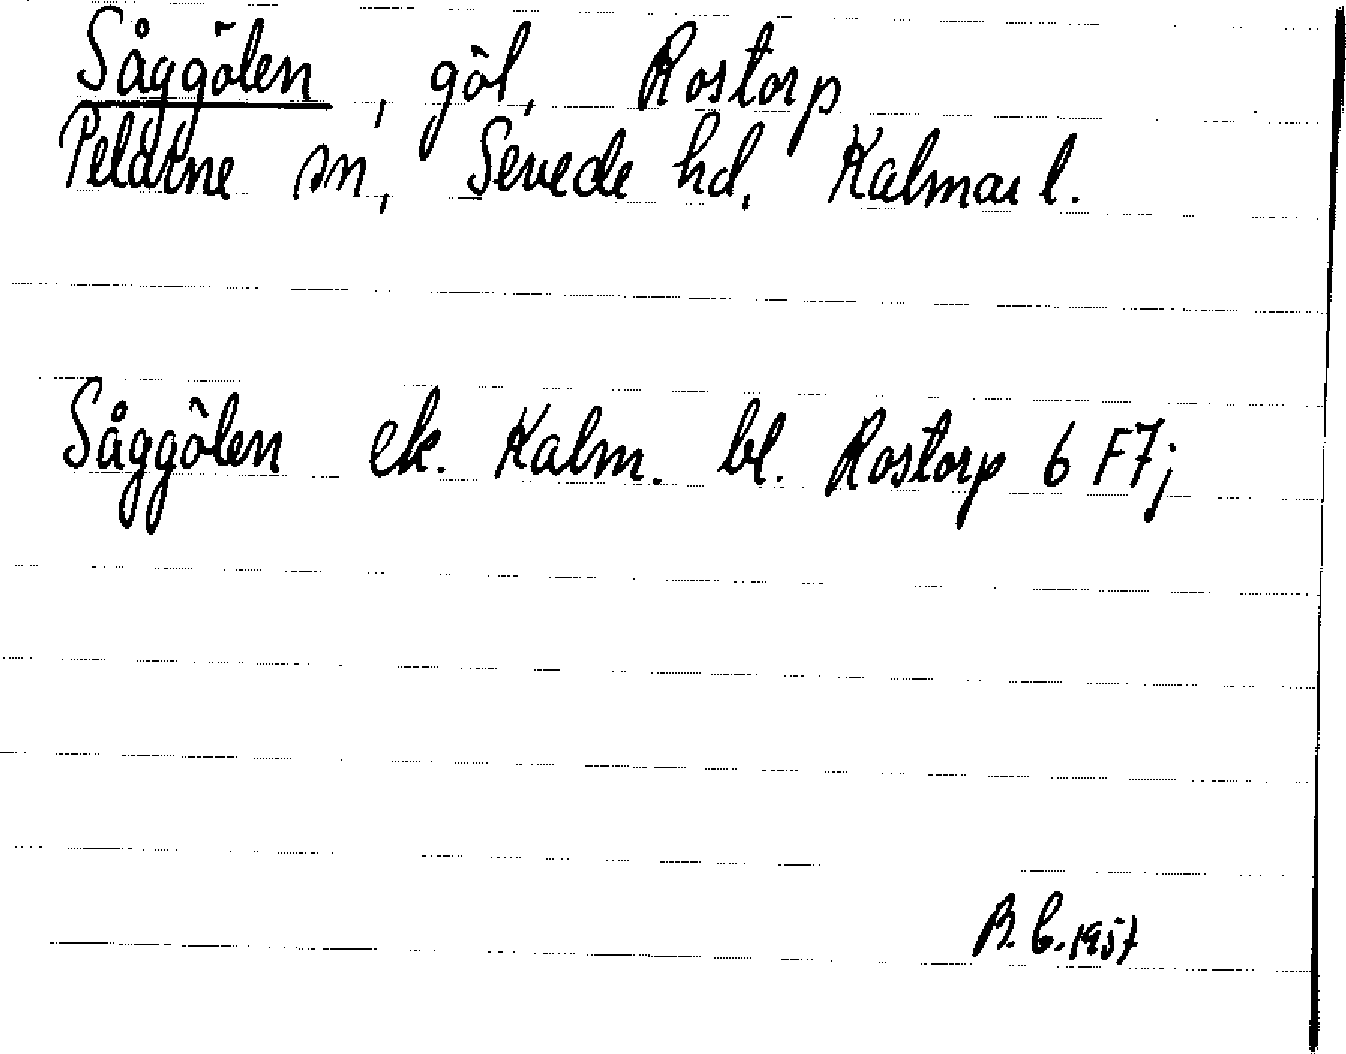 Såggölen, göl, Rostorp
Pelarne sn, Sevede hd, Kalmar l.
Såggölen ek. Kalm. bl. Rostorp 6 F7j
B. b. 1957